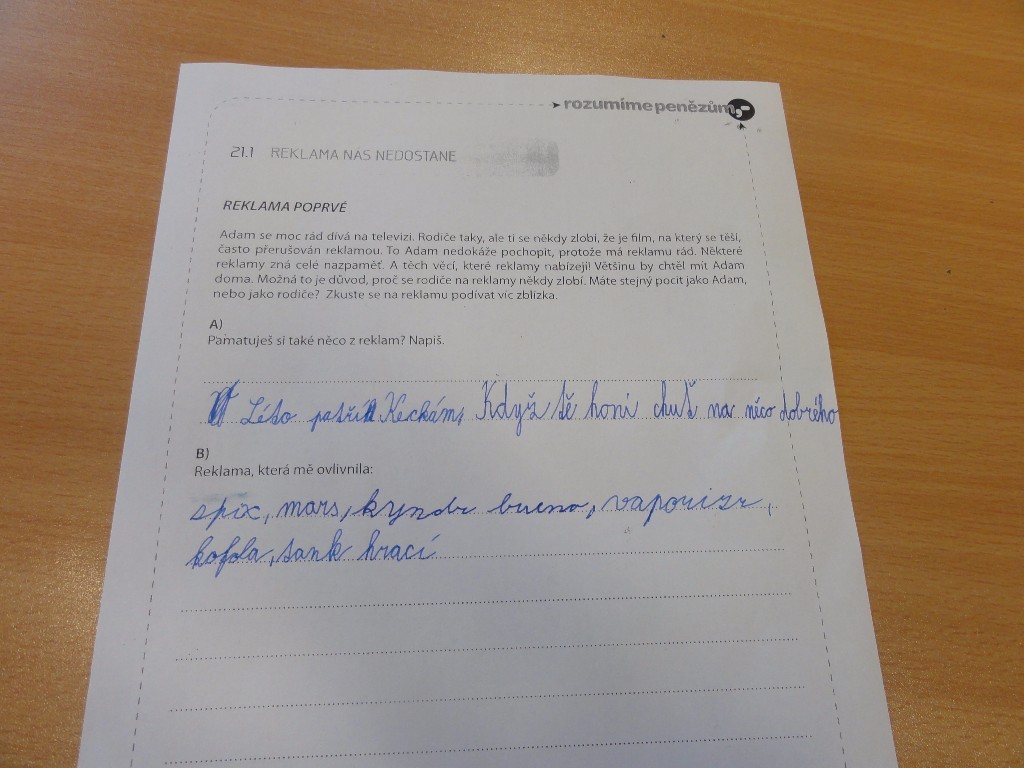 rozumíme penězům,-
21.1 REKLAMA NÁS NEDOSTANE
REKLAMA POPRVÉ
Adam se moc rád dívá na televizi. Rodiče taky, ale ti se někdy zlobí, že je film, na který se těší,
často přerušován reklamou. To Adam nedokáže pochopit, protože má reklamu rád. Některé
reklamy zná celé nazpaměť. A těch věcí, které reklamy nabízejí! Většinu by chtěl mít Adam
doma. Možná to je důvod, proč se rodiče na reklamy někdy zlobí. Máte stejný pocit jako Adam,
nebo jako rodiče? Zkuste se na reklamu podívat víc zblízka.
A)
Pamatuješ si také něco z reklam? Napiš.
Léto patří Keckám, Když tě honí chuť na něco dobrého
B)
Reklama, která mě ovlivnila:
spix, mars, kyndr bueno, vaporizr,
kofola, tank hrací